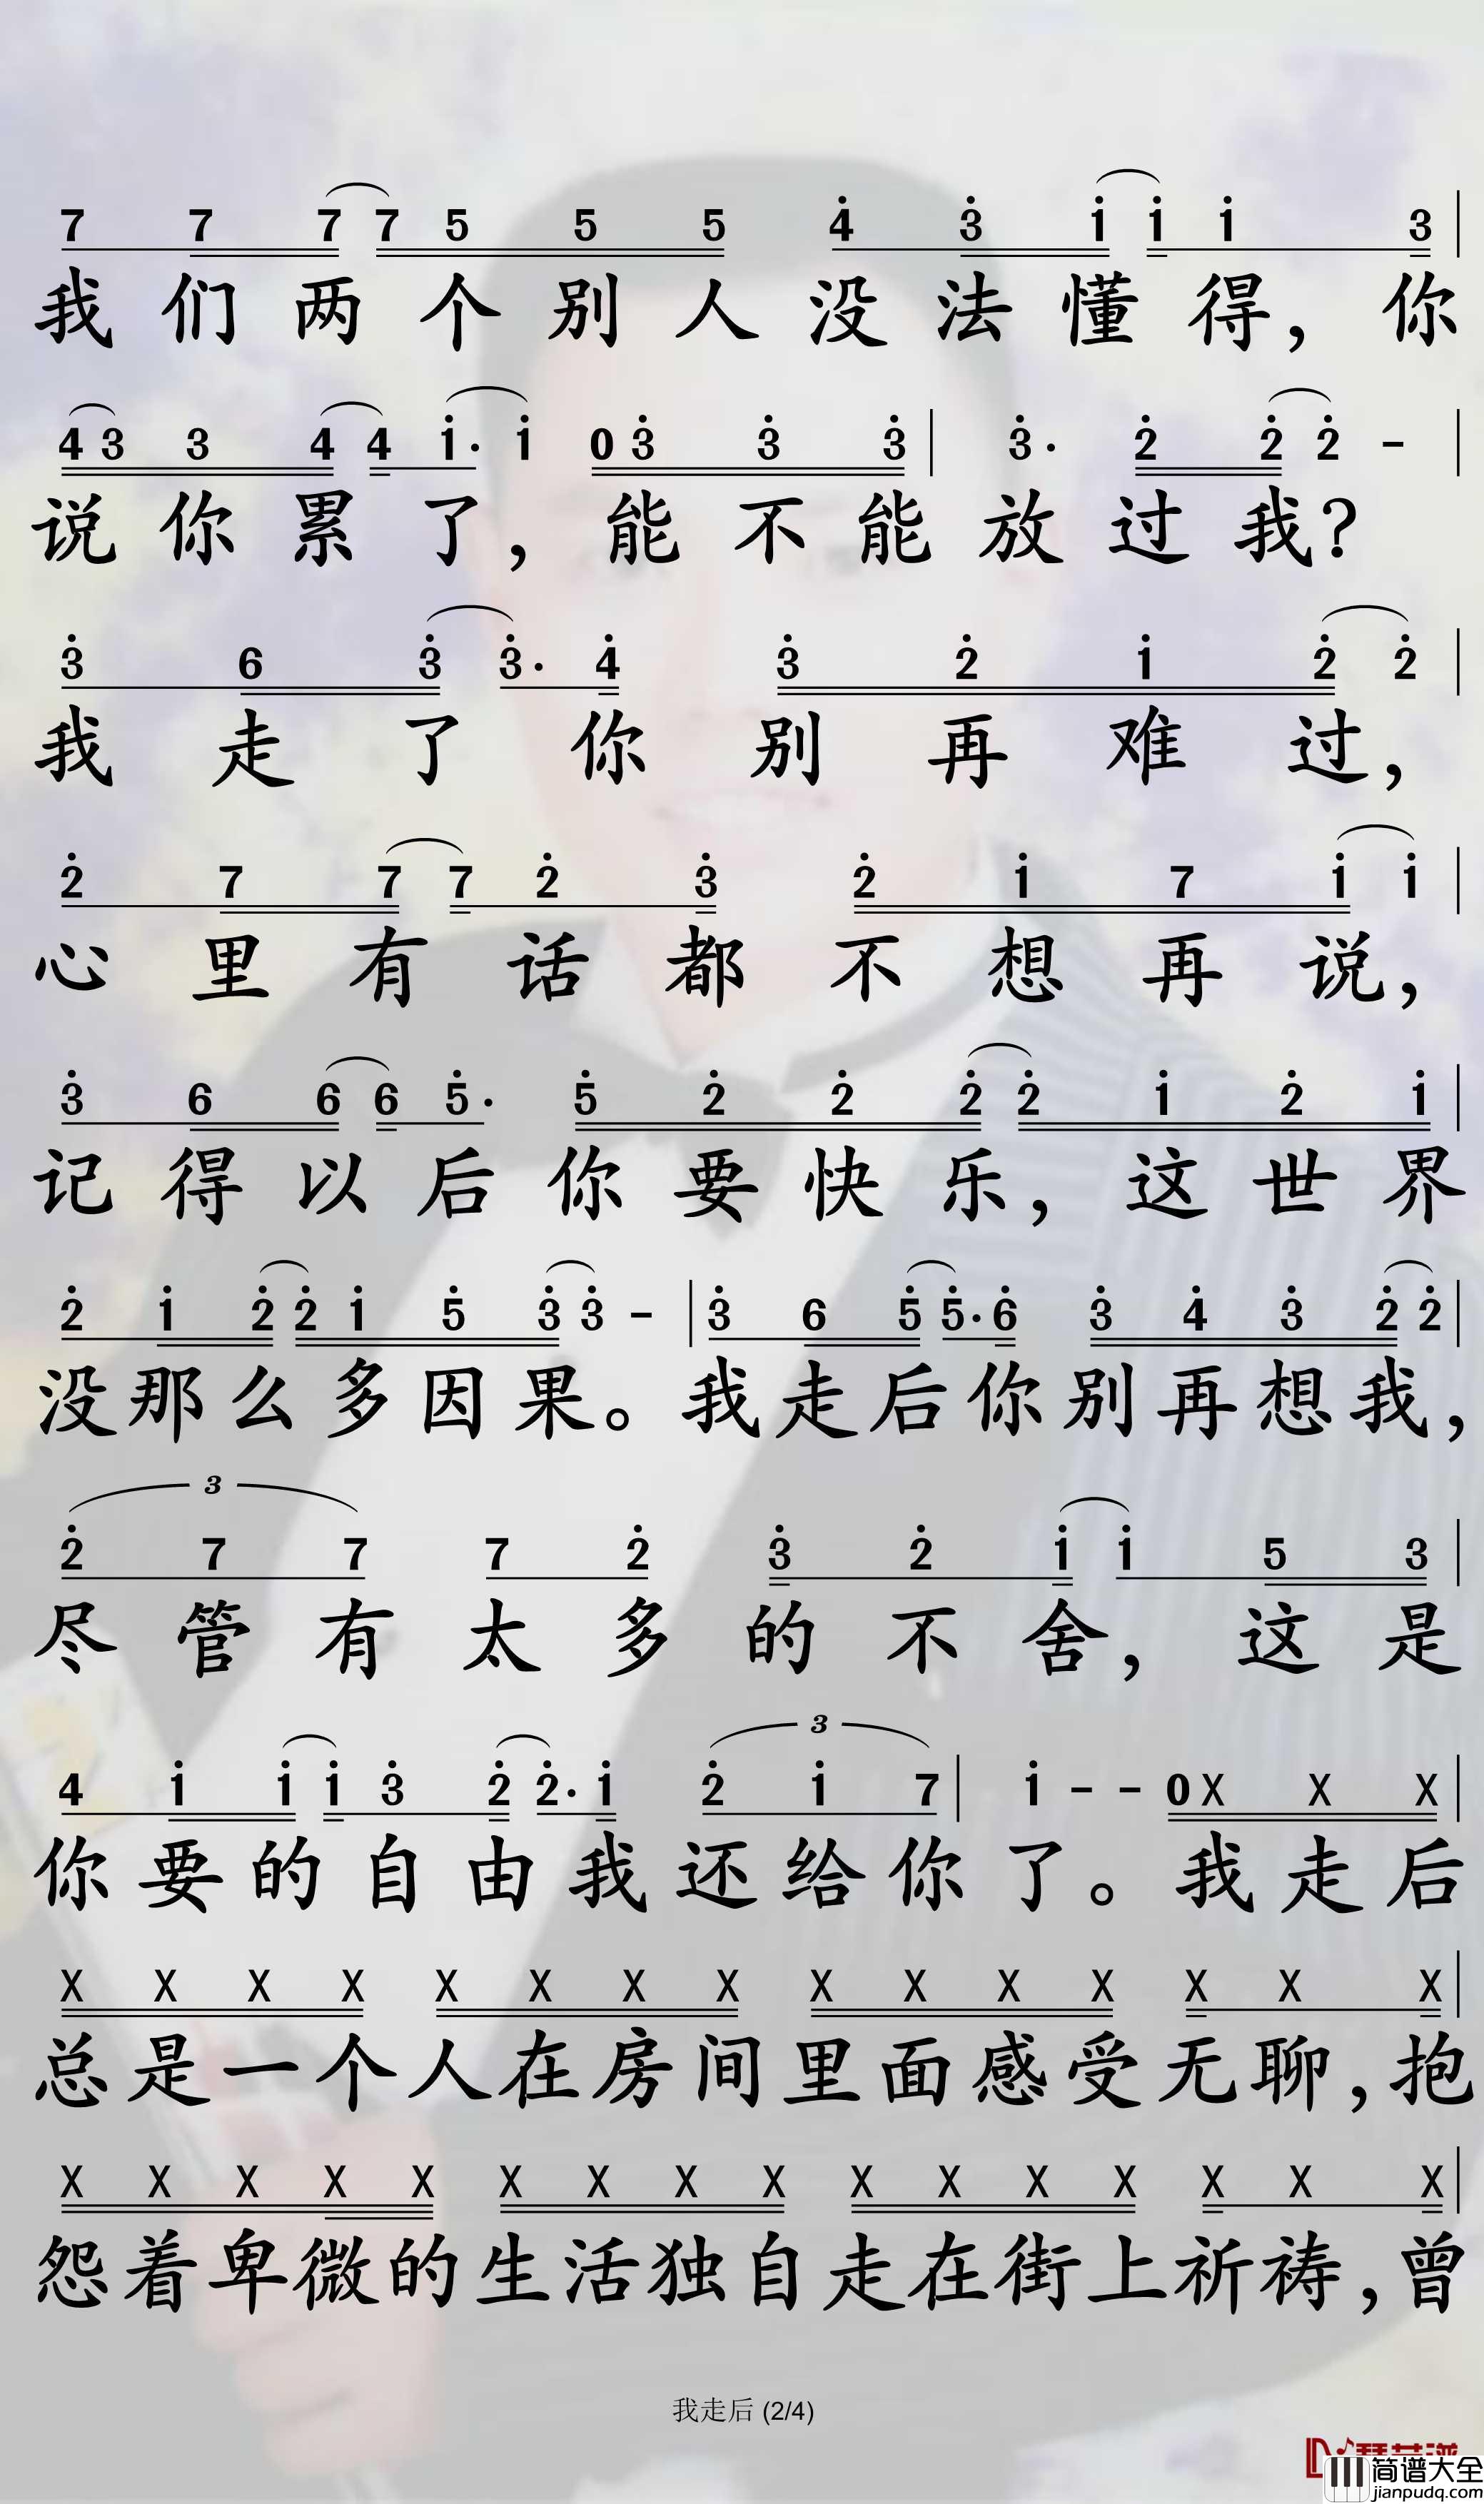 7 7 7 7 5 5 5 4̇ 3̇ 1̇ 1̇ 1̇ 3 |
我们两个别人没法懂得，你
4 3 3 4 4 1̇· 1̇ 0 3̇ 3̇ 3̇ | 3̇· 2̇ 2̇ 2̇ - |
说你累了，能不能放过我？
3̇ 6 3̇ 3̇· 4̇ 3̇ 2̇ 1̇ 2̇ 2̇ |
我走了你别再难过，
2̇ 7 7 7 2̇ 3̇ 2̇ 1̇ 7 1̇ 1̇ |
心里有话都不想再说，
3̇ 6 6 6 5̇· 5̇ 2̇ 2̇ 2̇ 2̇ 1̇ 2̇ 1̇ |
记得以后你要快乐，这世界
2̇ 1̇ 2̇ 2̇ 1̇ 5̇ 3̇ 3̇ - | 3̇ 6 5̇ 5̇· 6̇ 3̇ 4̇ 3̇ 2̇ 2̇ |
没那么多因果。我走后你别再想我，
3
2̇ 7 7 7 2̇ 3̇ 2̇ 1̇ 1̇ 5 3 |
尽管有太多的不舍，这是
3
4 1̇ 1̇ 1̇ 3̇ 2̇ 2̇· 1̇ 2̇ 1̇ 7 | 1̇ - - 0 X X X |
你要的自由我还给你了。我走后
X X X X X X X X X X X X X X X |
总是一个人在房间里面感受无聊，抱
X X X X X X X X X X X X X X X X |
怨着卑微的生活独自走在街上祈祷，曾
我走后 (2/4)
简谱大全
jianpudq.com